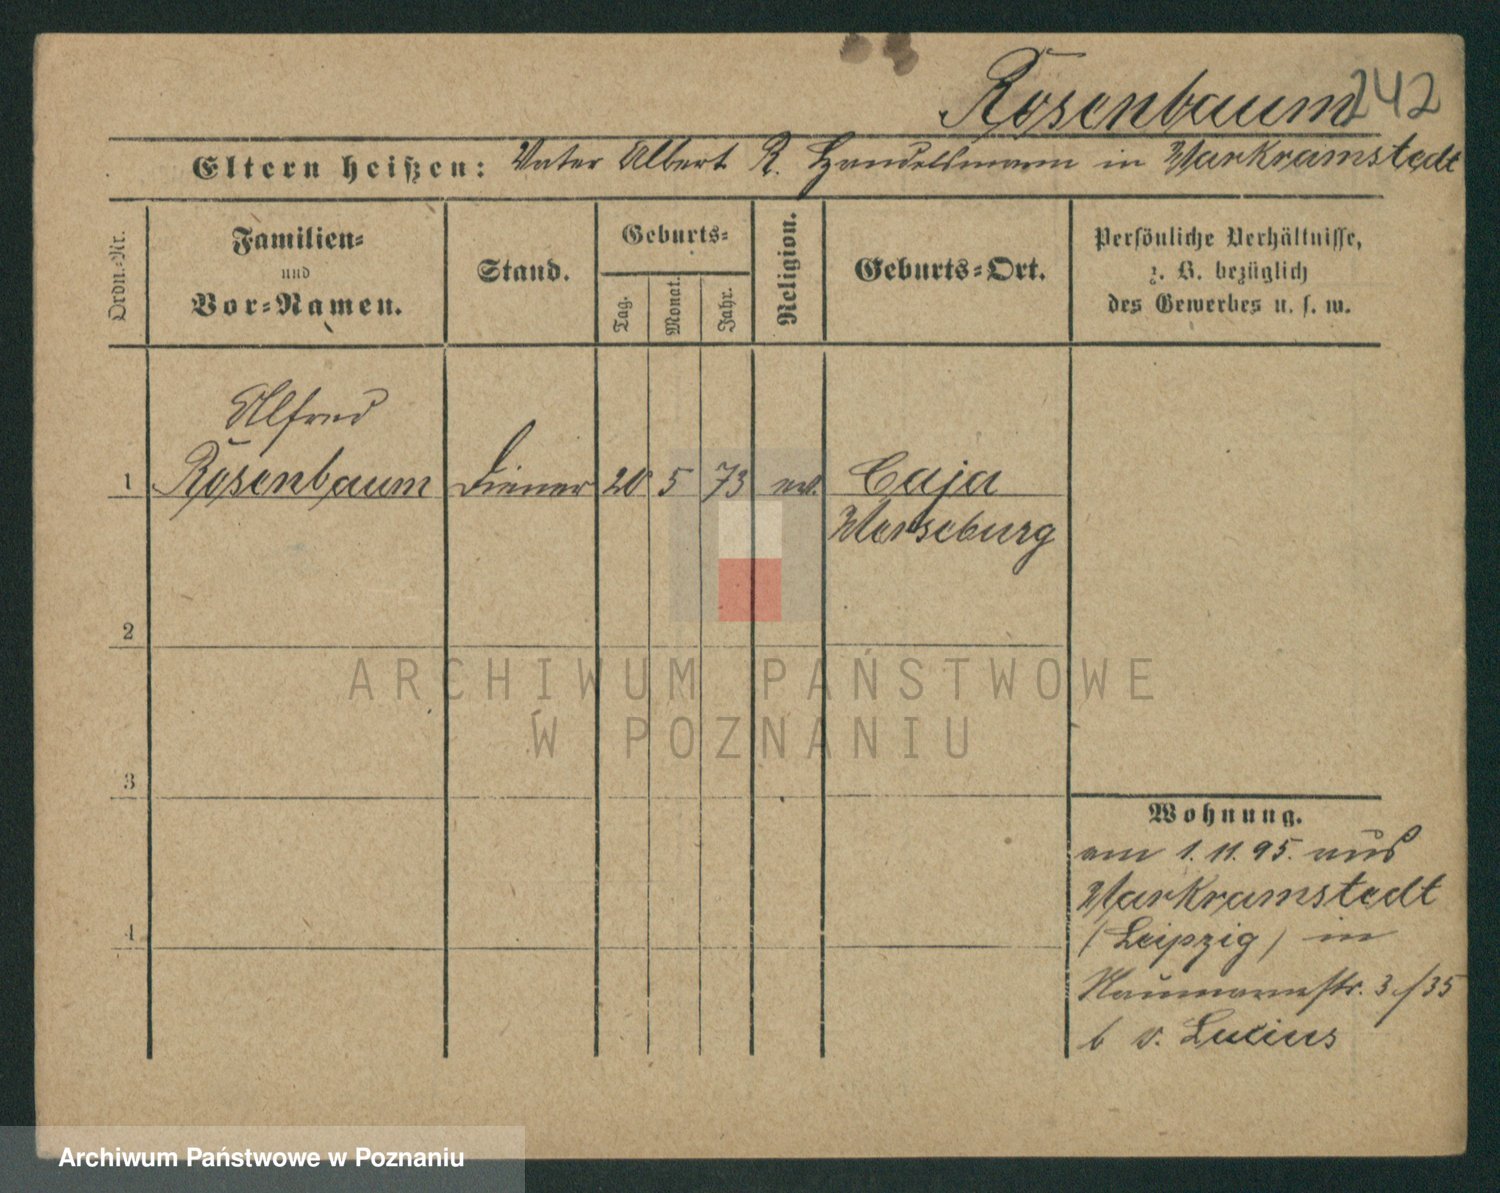 Rosenbaum 242
Eltern heißen: Vater Albert R. Handelsmann in Markranstedt
Ordn.-Nr.
Familien-
und
Vor-Namen.
Stand.
Geburts-
Tag.
Monat.
Jahr.
Religion.
Geburts-Ort.
Persönliche Verhältnisse,
z. B. bezüglich
des Gewerbes u. s. w.
Alfred
1 Rosenbaum Diener 20 5 73 ev. Caja
Merseburg
2
3
4
Wohnung.
am 1.11.95. aus
Markranstedt
(Leipzig) in
Naumannstr. 3/35
b v. Lucius
ARCHIWUM PAŃSTWOWE
W POZNANIU
Archiwum Państwowe w Poznaniu